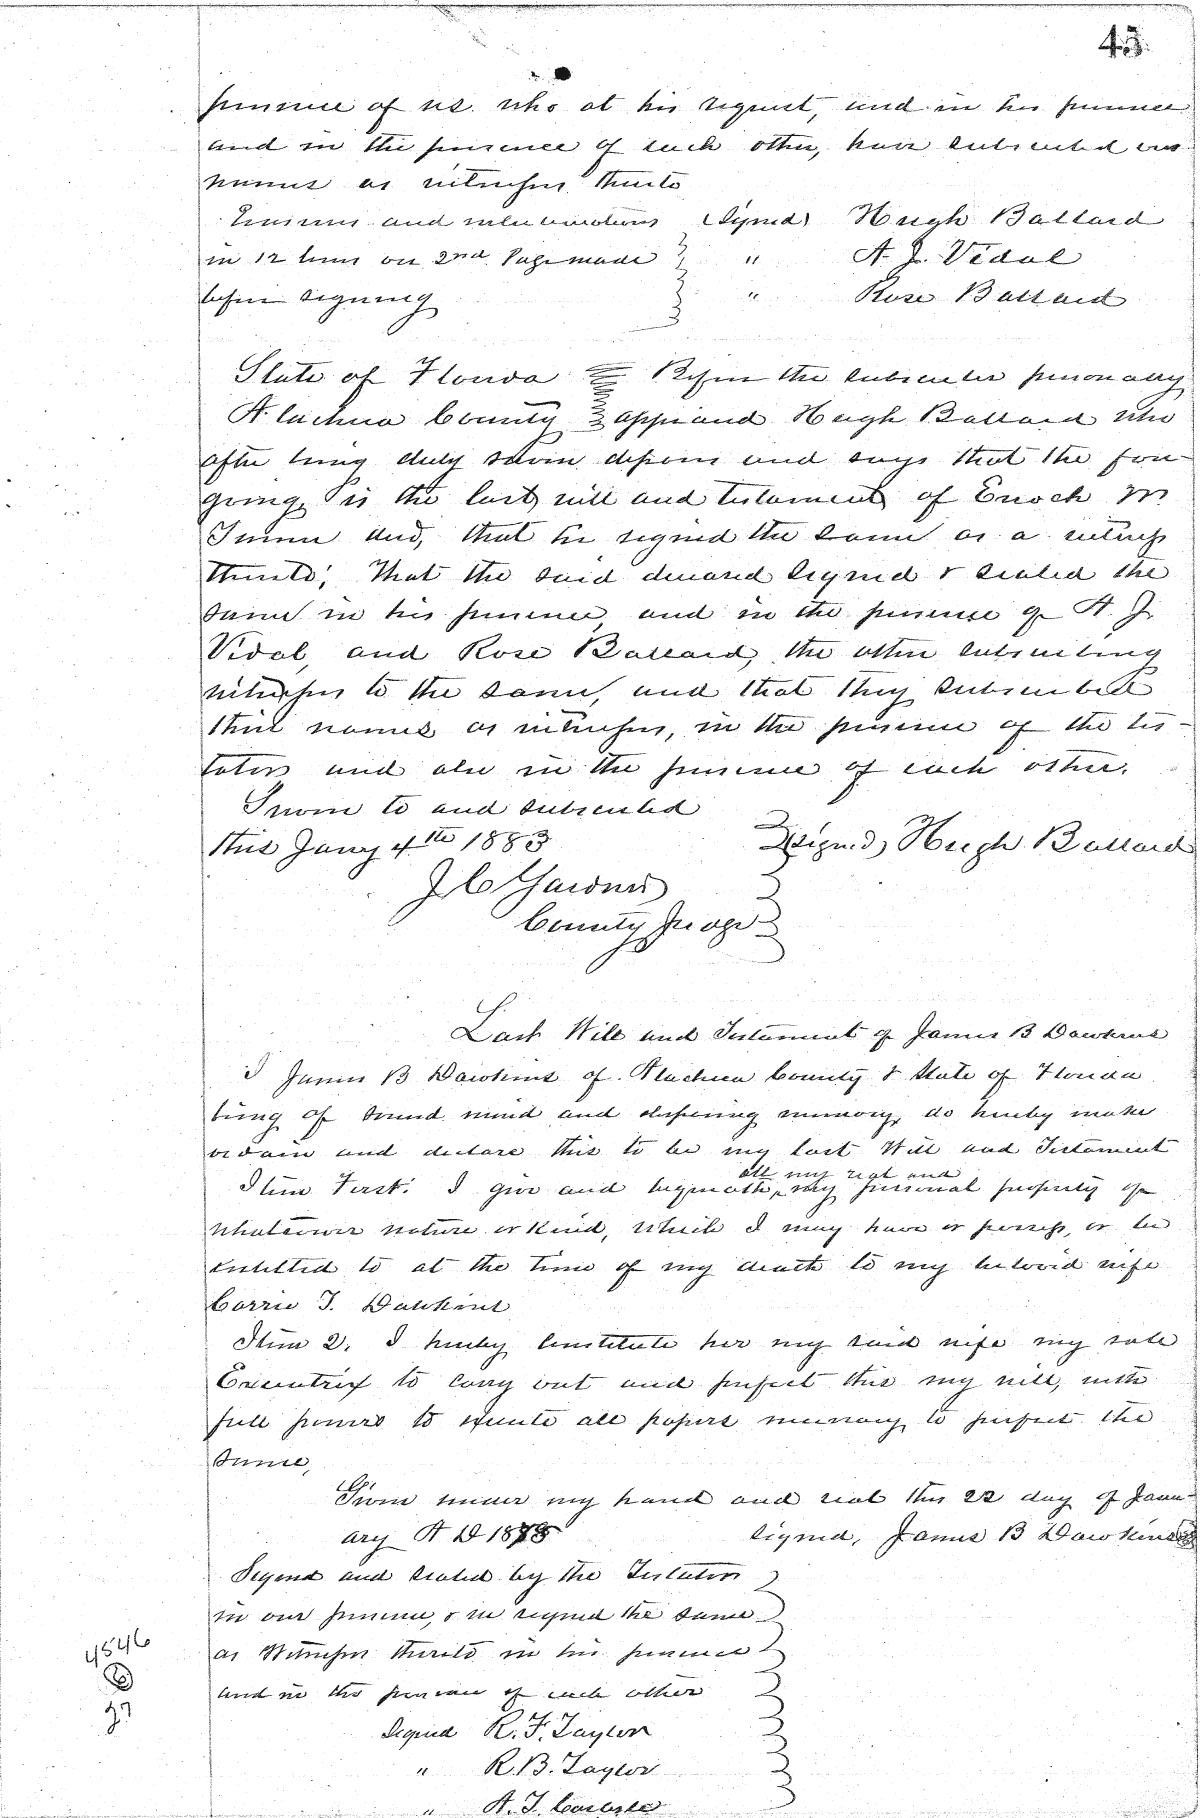 45
presence of us. who at his request, and in his presence
and in the presence of each other, have subscribed our
names as witnesses thereto
Erasures and interlineations (Signed) Hugh Ballard
in 12 lines on 2nd Page made " A. J. Vidal
before signing " Rose Ballard
State of Florida Before the subscriber personally
Alachua County appeared Hugh Ballard who
after being duly sworn deposes and says that the fore-
going is the last will and testament of Enoch M
and, that he signed the same as a witness
thereto; That the said deceased signed & sealed the
same in his presence, and in the presence of A. J.
Vidal, and Rose Ballard, the other subscribing
witnesses to the same, and that they subscribed
their names as witnesses, in the presence of the tes-
tator and also in the presence of each other.
Sworn to and subscribed
this Jany 4th 1883 (Signed) Hugh Ballard
J C Gardner
County Judge
Last Will and Testament of James B Dawkins
I James B Dawkins of Alachua County & State of Florida
being of sound mind and disposing memory, do hereby make
ordain and declare this to be my last Will and Testament
all my real and
Item First. I give and bequeath, my personal property of
whatsoever nature or kind, which I may have or possess, or be
entitled to at the time of my death to my beloved wife
Carrie T. Dawkins
Item 2. I hereby Constitute her my said wife my sole
Executrix to carry out and perfect this my will, with
full powers to execute all papers necessary to perfect the
same,
Given under my hand and seal this 22 day of Janu-
ary A D 1878 Signed, James B Dawkins
Signed and sealed by the Testator
in our presence, & we signed the same
as Witnesses thereto in his presence
and in the presence of each other
Signed R. F. Taylor
" R. B. Taylor
" A. J. Carlisle
4546